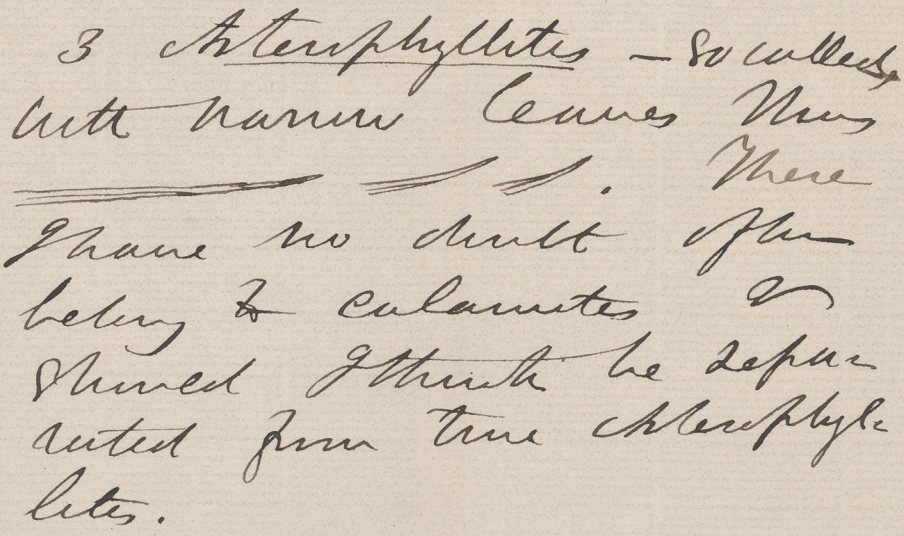 3 Asterophyllites — so called,
with narrow leaves thus
. These
I have no doubt often
belong to calamites &
should I think be sepa-
rated from true Asterophyl-
lites.